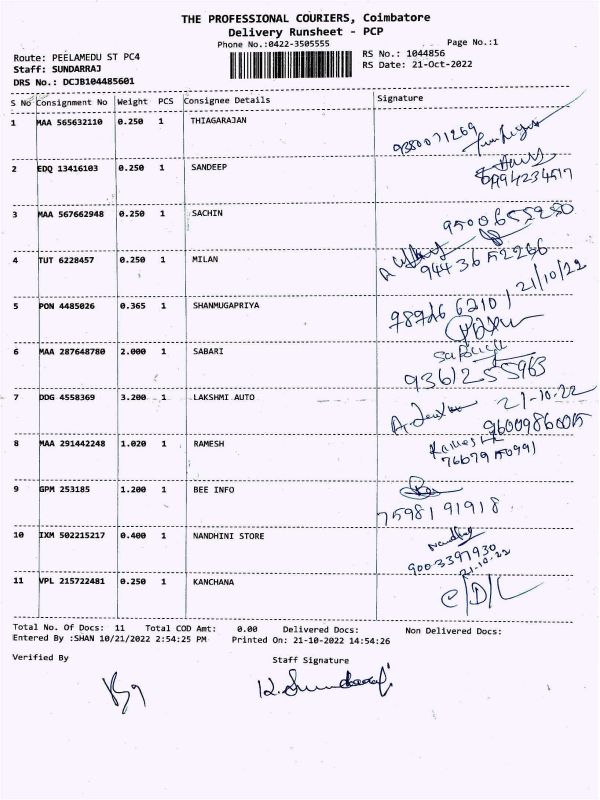 THE PROFESSIONAL COURIERS, Coimbatore
Delivery Runsheet - PCP
Phone No.:0422-3505555 Page No.:1
Route: PEELAMEDU ST PC4 RS No.: 1044856
Staff: SUNDARRAJ RS Date: 21-Oct-2022
DRS No.: DCJB104485601
S No Consignment No Weight PCS Consignee Details Signature
1 MAA 565632110 0.250 1 THIAGARAJAN 9380071269
2 EDQ 13416103 0.250 1 SANDEEP
3 MAA 567662948 0.250 1 SACHIN 9500655250
4 TUT 6228457 0.250 1 MILAN 9443652266
21/10/22
5 PON 4485026 0.365 1 SHANMUGAPRIYA
6 MAA 287648780 2.000 1 SABARI
9361255963
7 DDG 4558369 3.200 1 LAKSHMI AUTO 21-10-22
9600986005
8 MAA 291442248 1.020 1 RAMESH Ramesh
7667950991
9 GPM 253185 1.200 1 BEE INFO
7598191918
10 IXM 502215217 0.400 1 NANDHINI STORE
9003397930
21-10-22
11 VPL 215722481 0.250 1 KANCHANA C/D/L
Total No. Of Docs: 11 Total COD Amt: 0.00 Delivered Docs: Non Delivered Docs:
Entered By :SHAN 10/21/2022 2:54:25 PM Printed On: 21-10-2022 14:54:26
Verified By Staff Signature